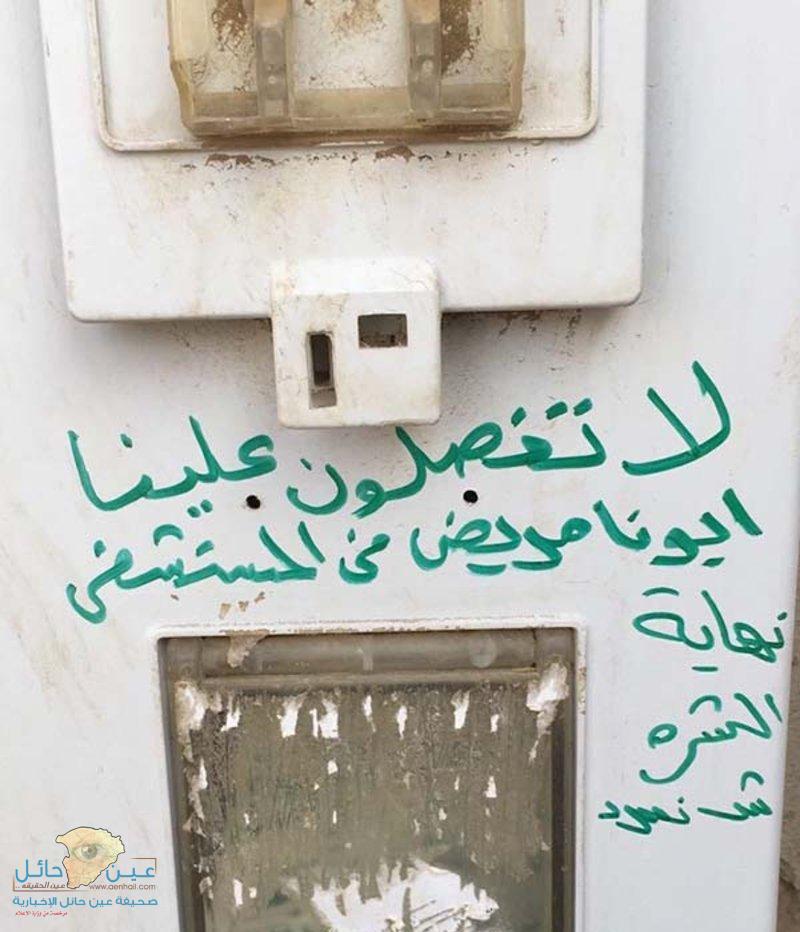 لا تفصلون علينا
ابونا مريض في المستشفى
نهاية
الشهر
نسدد
عين حائل
عين الحقيقة ..
www.aenhail.com
صحيفة عين حائل الإخبارية
مرخصة من وزارة الاعلام